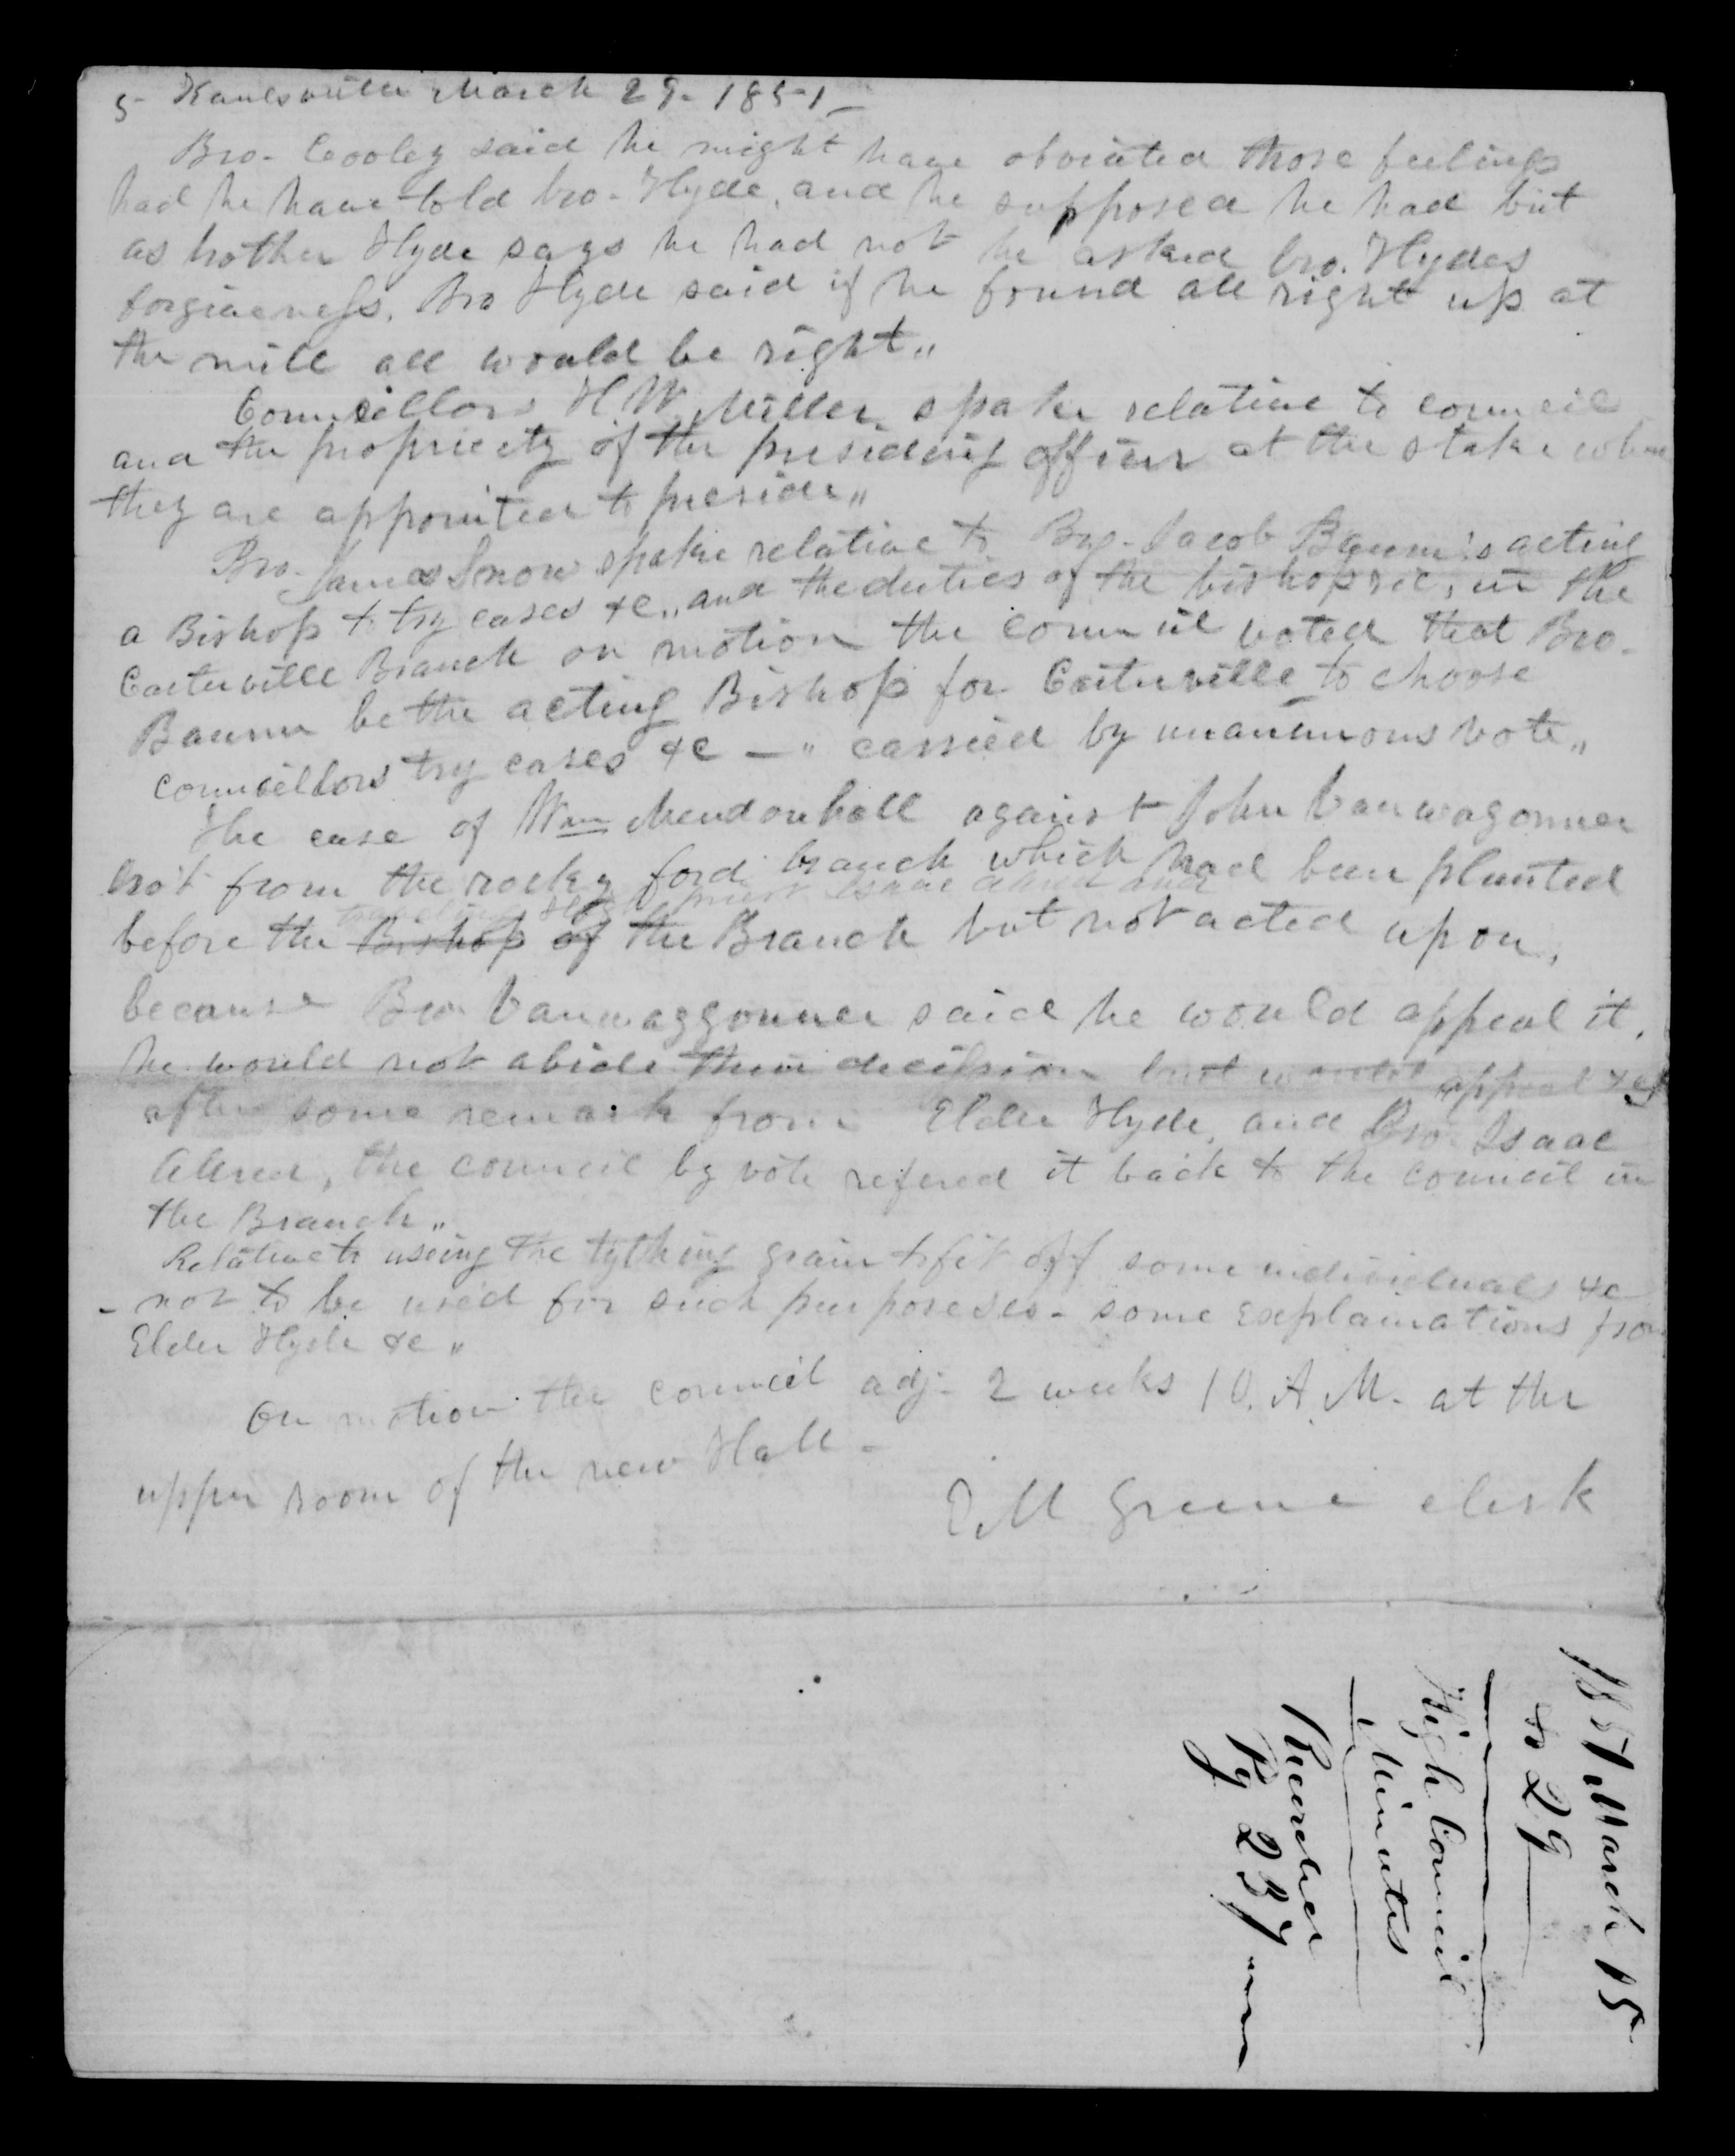 5- Kanesville March 29- 1851-
Bro- Cooley said he might have obviated those feelings
had he have told bro- Hyde, and he supposed he had but
as brother Hyde says he had not he asked bro. Hydes
forgiveness. Bro Hyde said if he found all right up at
the mill all would be right„
Councillors H W Miller spake relative to council
and the propriety of the presiding officer at the stake where
they are appointed to preside„
Bro- James Snow spake relative to Bro- Jacob Baum's acting
a Bishop to try cases &c„ and the duties of the bishopric, in the
Carterville Branch on motion the council voted that Bro-
Baum be the acting Bishop for Carterville to choose
councillors try cases &c — „ carried by unanimous vote„
The case of Wm Mendonhall against John Vanwagonner
bro't from the rocky ford branch which had been planted
traveling High priest Isaac Alred and
before the Bishop of the Branch but not acted upon,
because Bro Vanwaggonner said he would appeal it.
he would not abide their decission but would appeal &c
after some remark from Elder Hyde, and Bro- Isaac
Alred, the council by vote refered it back to the council in
the Branch„
Relative to using the tything grain to fit off some individuals &c
- not to be used for such purposeses- some explainations from
Elder Hyde &c „
On motion the council adj- 2 weeks 10. A. M- at the
upper room of the new Hall-
E M Greene clerk
1851 March 15
to 29
High Council
Minutes
Recorded
Pg 237